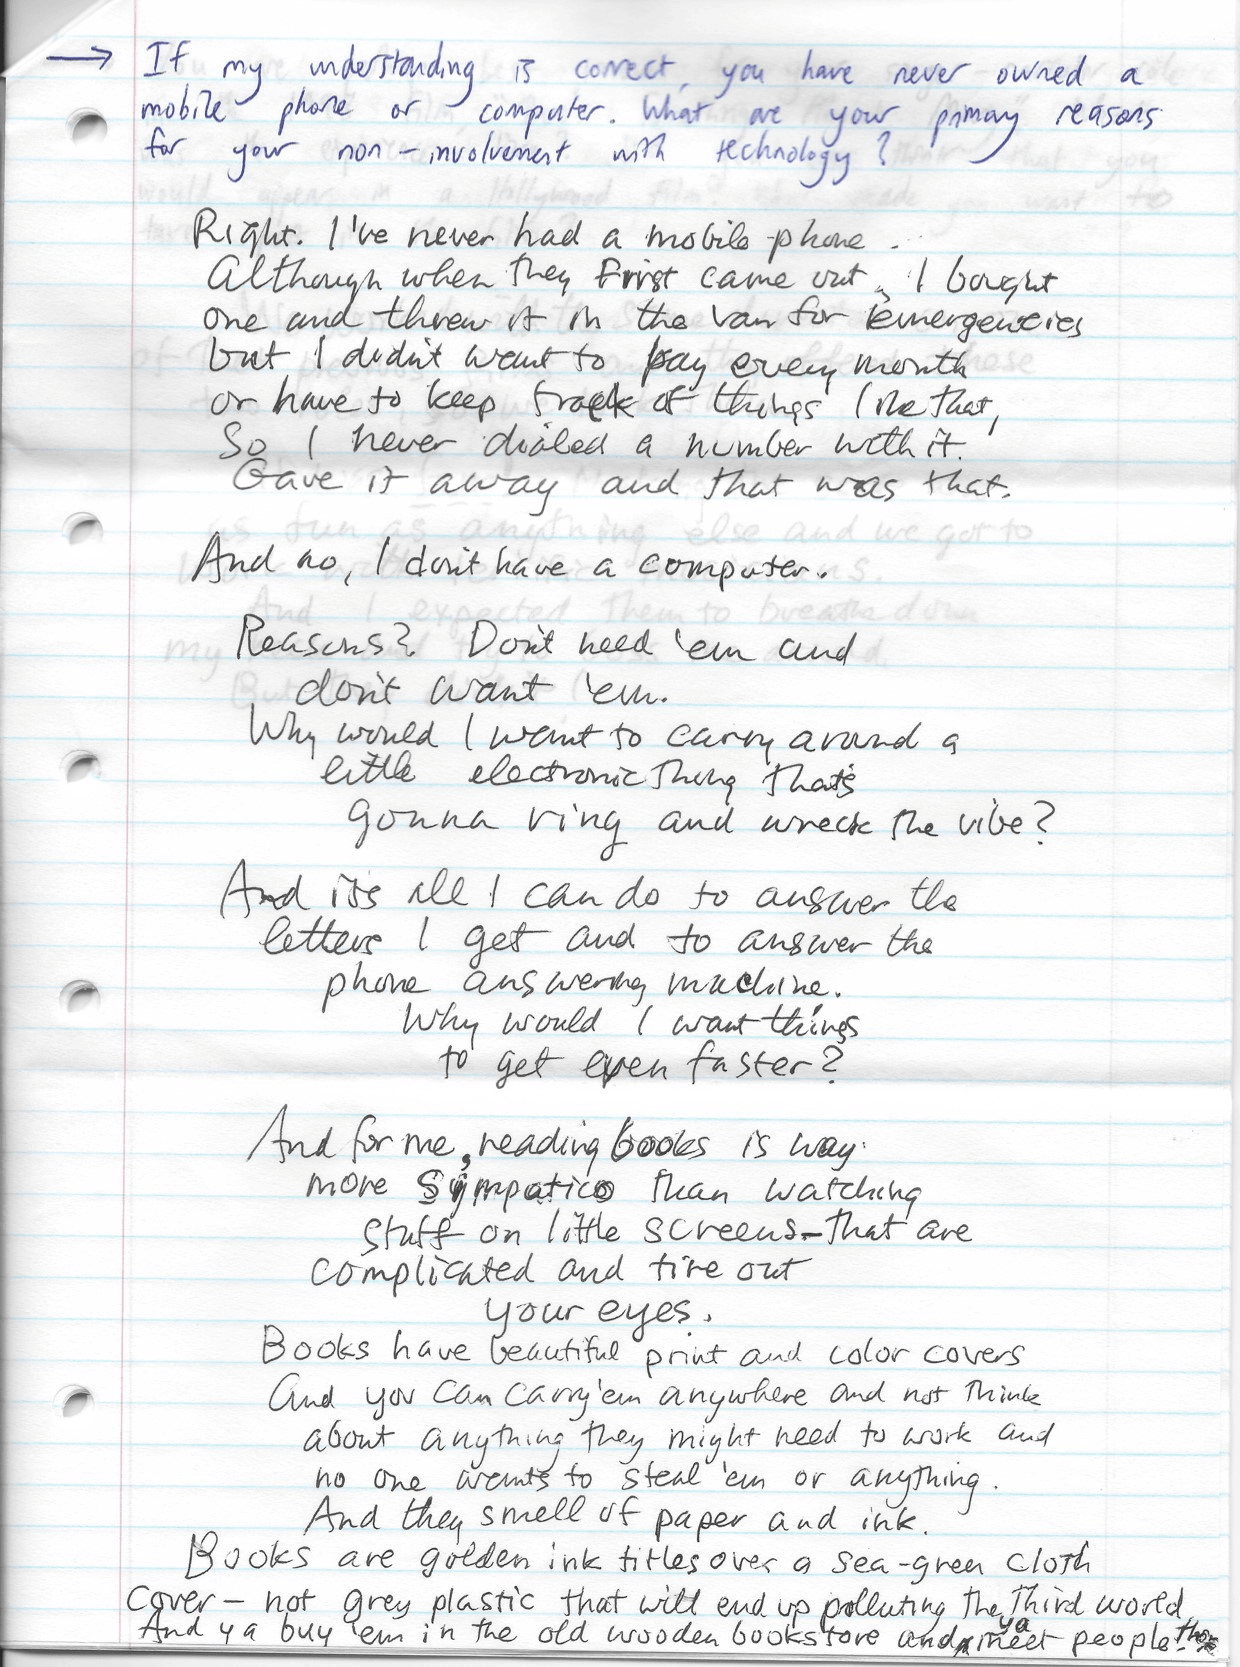 → If my understanding is correct, you have never owned a
mobile phone or computer. What are your primary reasons
for your non-involvement with technology?
Right. I've never had a mobile phone.
Although when they first came out, I bought
one and threw it in the van for emergencies
but I didn't want to pay every month
or have to keep track of things like that,
So I never dialed a number with it.
Gave it away and that was that.
And no, I don't have a computer.
Reasons? Don't need 'em and
don't want 'em.
Why would I want to carry around a
little electronic thing that's
gonna ring and wreck the vibe?
And it's all I can do to answer the
letters I get and to answer the
phone answering machine.
Why would I want things
to get even faster?
And for me, reading books is way
more sympatico than watching
stuff on little screens–that are
complicated and tire out
your eyes.
Books have beautiful print and color covers
And you can carry 'em anywhere and not think
about anything they might need to work and
no one wants to steal 'em or anything.
And they smell of paper and ink.
Books are golden ink titles over a sea-green cloth
cover – not grey plastic that will end up polluting the Third world
And ya buy 'em in the old wooden bookstore and ya meet people there